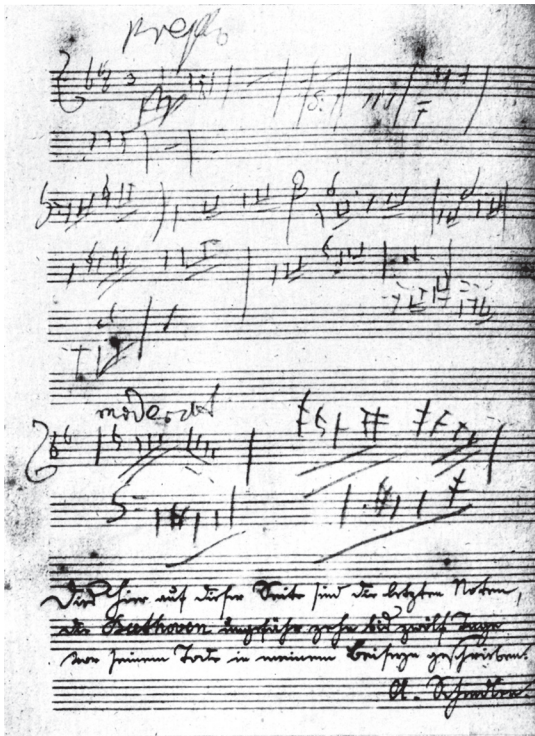 presto
moderato
Diese hier auf dieser Seite sind die letzten Noten,
die Beethoven ungefähr zehn bis zwölf Tage
vor seinem Tode in meinem Beiseyn geschrieben.
A. Schindler